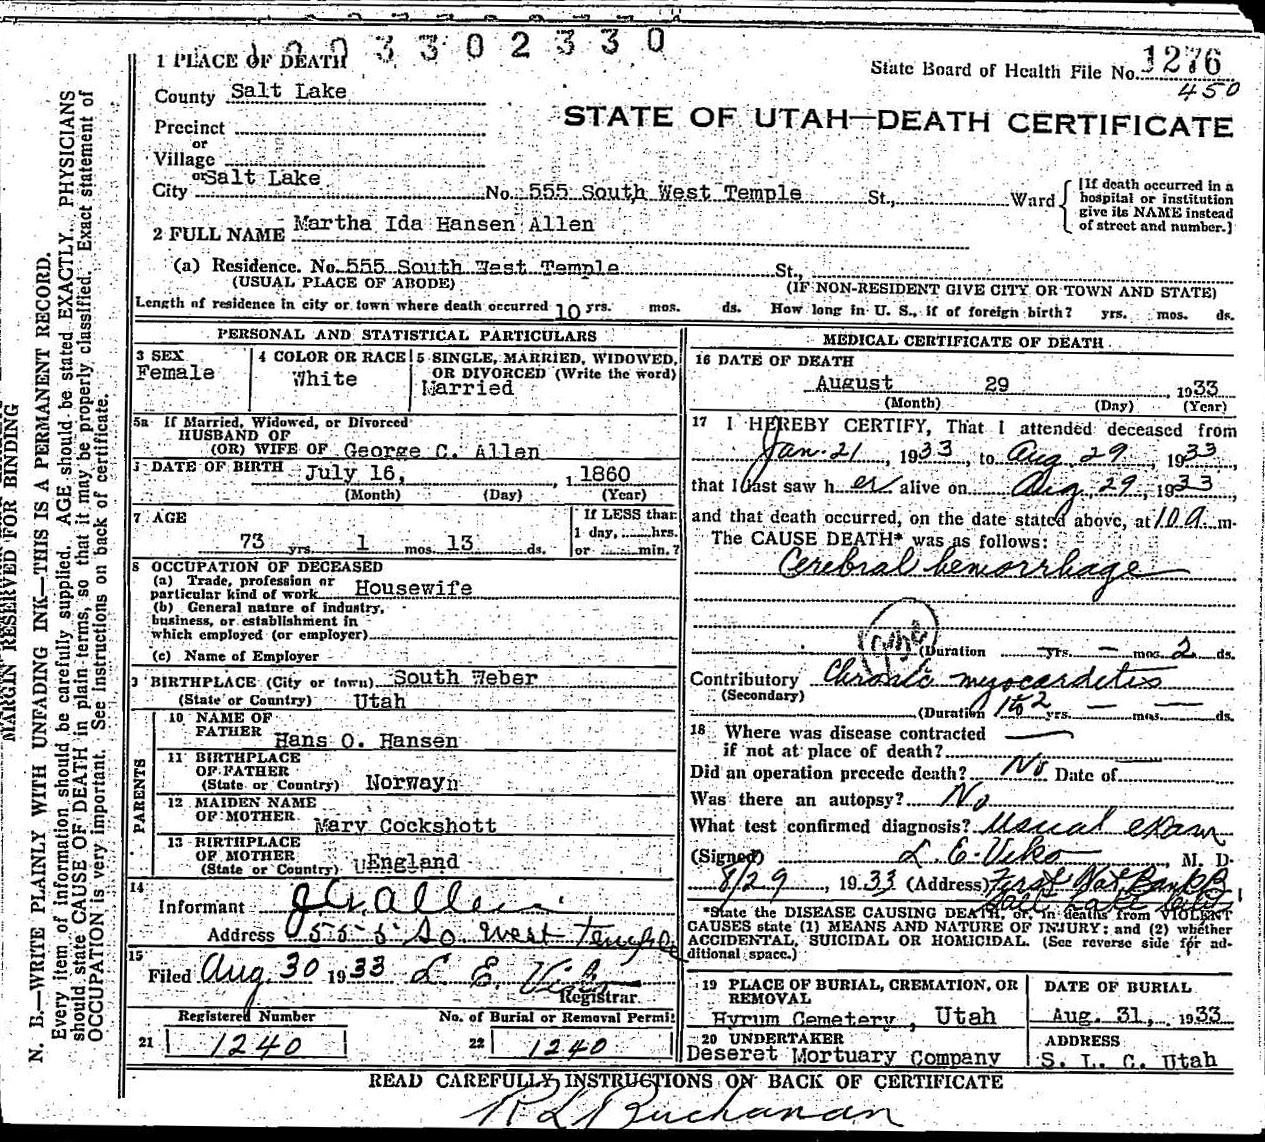 1003302330
1 PLACE OF DEATH
State Board of Health File No. 1276
450
County Salt Lake
STATE OF UTAH—DEATH CERTIFICATE
Precinct
or
Village
or Salt Lake
City No. 555 South West Temple St., Ward
[If death occurred in a
hospital or institution
give its NAME instead
of street and number.]
2 FULL NAME Martha Ida Hansen Allen
(a) Residence. No. 555 South West Temple St.,
(USUAL PLACE OF ABODE) (IF NON-RESIDENT GIVE CITY OR TOWN AND STATE)
Length of residence in city or town where death occurred 10 yrs. mos. ds. How long in U. S., if of foreign birth? yrs. mos. ds.
PERSONAL AND STATISTICAL PARTICULARS
3 SEX
Female
4 COLOR OR RACE
White
5 SINGLE, MARRIED, WIDOWED,
OR DIVORCED (Write the word)
Married
5a If Married, Widowed, or Divorced
HUSBAND OF
(OR) WIFE OF George C. Allen
DATE OF BIRTH July 16, 1 1860
(Month) (Day) (Year)
7 AGE
73 yrs. 1 mos. 13 ds.
If LESS than
1 day, hrs.
or min.?
8 OCCUPATION OF DECEASED
(a) Trade, profession or
particular kind of work Housewife
(b) General nature of industry,
business, or establishment in
which employed (or employer)
(c) Name of Employer
9 BIRTHPLACE (City or town) South Weber
(State or Country) Utah
PARENTS
10 NAME OF
FATHER Hans O. Hansen
11 BIRTHPLACE
OF FATHER
(State or Country) Norwayn
12 MAIDEN NAME
OF MOTHER Mary Cockshott
13 BIRTHPLACE
OF MOTHER
(State or Country) England
14
Informant J. G. Allen
Address 555 So West Temple
15
Filed Aug. 30 1933 L. E. Viko
Registrar
Registered Number No. of Burial or Removal Permit
21 1240 22 1240
MEDICAL CERTIFICATE OF DEATH
16 DATE OF DEATH
August 29 , 1933
(Month) (Day) (Year)
17 I HEREBY CERTIFY, That I attended deceased from
Jan. 21, 1933, to Aug 29, 1933,
that I last saw her alive on Aug. 29, 1933,
and that death occurred, on the date stated above, at 10 a m.
The CAUSE DEATH* was as follows:
Cerebral hemorrhage
(Duration — yrs. — mos. 2 ds.
Contributory Chronic myocarditis
(Secondary)
(Duration 1 to 2 yrs. — mos. — ds.
18 Where was disease contracted
if not at place of death? —
Did an operation precede death? No Date of
Was there an autopsy? No
What test confirmed diagnosis? Usual exam
(Signed) L. E. Viko, M. D.
8/29, 1933 (Address) First Nat Bank B
Salt Lake City
*State the DISEASE CAUSING DEATH, or, in deaths from VIOLENT
CAUSES state (1) MEANS AND NATURE OF INJURY: and (2) whether
ACCIDENTAL, SUICIDAL OR HOMICIDAL. (See reverse side for ad-
ditional space.)
19 PLACE OF BURIAL, CREMATION, OR
REMOVAL
Hyrum Cemetery, Utah
DATE OF BURIAL
Aug. 31, 1933
20 UNDERTAKER
Deseret Mortuary Company
ADDRESS
S. L. C. Utah
READ CAREFULLY INSTRUCTIONS ON BACK OF CERTIFICATE
R L Buchanan
MARGIN RESERVED FOR BINDING
N. B.—WRITE PLAINLY WITH UNFADING INK—THIS IS A PERMANENT RECORD.
Every item of information should be carefully supplied. AGE should be stated EXACTLY. PHYSICIANS
should state CAUSE OF DEATH in plain terms, so that it may be properly classified. Exact statement of
OCCUPATION is very important. See instructions on back of certificate.